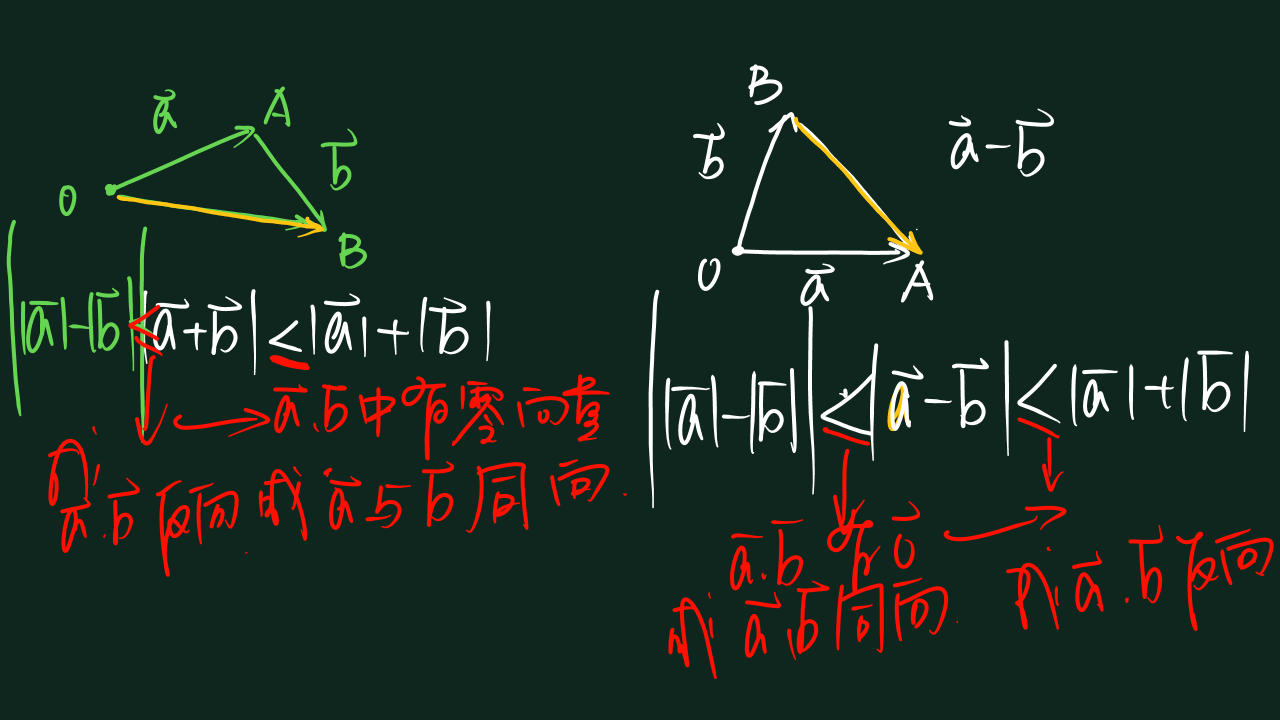 a⃗ A
b⃗
O
B
||a⃗|-|b⃗|| ≤ |a⃗+b⃗| ≤ |a⃗|+|b⃗|
a⃗.b⃗中有零向量
或
a⃗.b⃗反向 或a⃗与b⃗同向.
B
b⃗
a⃗-b⃗
O a⃗ A
||a⃗|-|b⃗|| ≤ |a⃗-b⃗| ≤ |a⃗|+|b⃗|
a⃗.b⃗有0⃗
或a⃗,b⃗同向.
或a⃗.b⃗反向